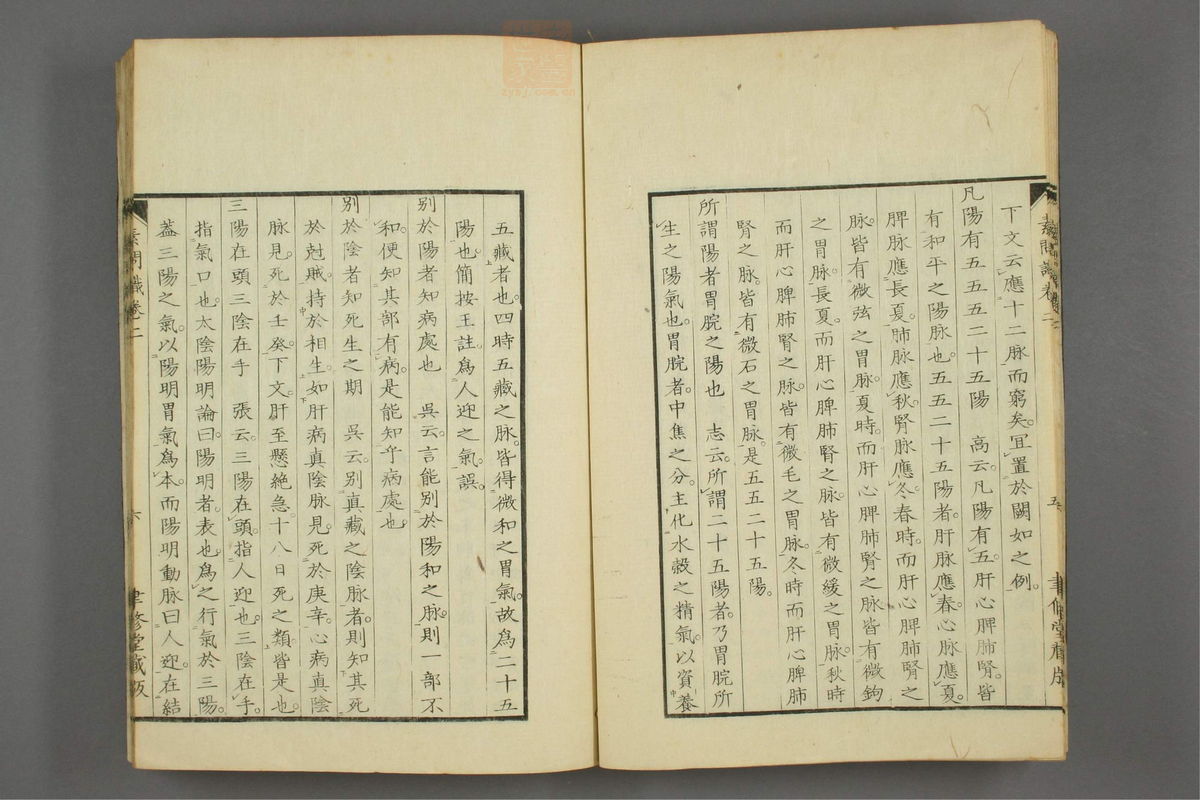 下文云應十二脉而窮矣宜置於闕如之例
凡陽有五五五二十五陽　高云凡陽有五肝心脾肺腎皆
有和平之陽脉也五五二十五陽者肝脉應春心脉應夏
脾脉應長夏肺脉應秋腎脉應冬春時而肝心脾肺腎之
脉皆有微弦之胃脉夏時而肝心脾肺腎之脉皆有微鉤
之胃脉長夏而肝心脾肺腎之脉皆有微緩之胃脉秋時
而肝心脾肺腎之脉皆有微毛之胃脉冬時而肝心脾肺
腎之脉皆有微石之胃脉是五五二十五陽
所謂陽者胃脘之陽也　志云所謂二十五陽者乃胃脘所
生之陽氣也胃脘者中焦之分主化水穀之精氣以資養
五藏者也四時五藏之脉皆得微和之胃氣故爲二十五
陽也簡按王註爲人迎之氣誤
別於陽者知病處也　吳云言能別於陽和之脉則一部不
和便知其部有病是能知乎病處也
別於陰者知死生之期　吳云別真藏之陰脉者則知其死
於尅賊持於相生如肝病真陰脉見死於庚辛心病真陰
脉見死於壬癸下文肝至懸絶急十八日死之類皆是也
三陽在頭三陰在手　張云三陽在頭指人迎也三陰在手
指氣口也太陰陽明論曰陽明者表也爲之行氣於三陽
蓋三陽之氣以陽明胃氣爲本而陽明動脉曰人迎在結
素問識卷二
六
聿修堂藏版